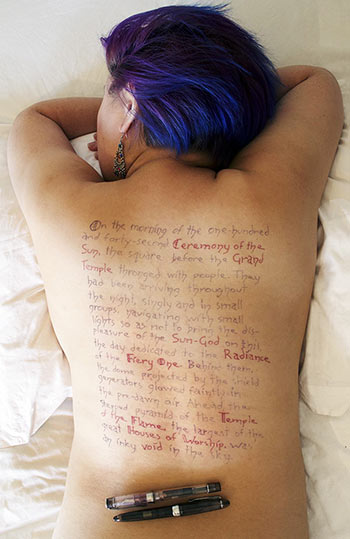 On the morning of the one-hundred
and forty-second Ceremony of the
Sun, the square before the Grand
Temple thronged with people. They
had been arriving throughout
the night, singly and in small
groups, navigating with small
lights so as not to bring the dis-
pleasure of the Sun-God on this,
the day dedicated to the Radiance
of the Fiery One. Behind them,
the dome projected by the shield
generators glowed faintly in
the pre-dawn air. Ahead, the
stepped pyramid of the Temple
of the Flame, the largest of the
great Houses of Worship, was
an inky void in the sky.